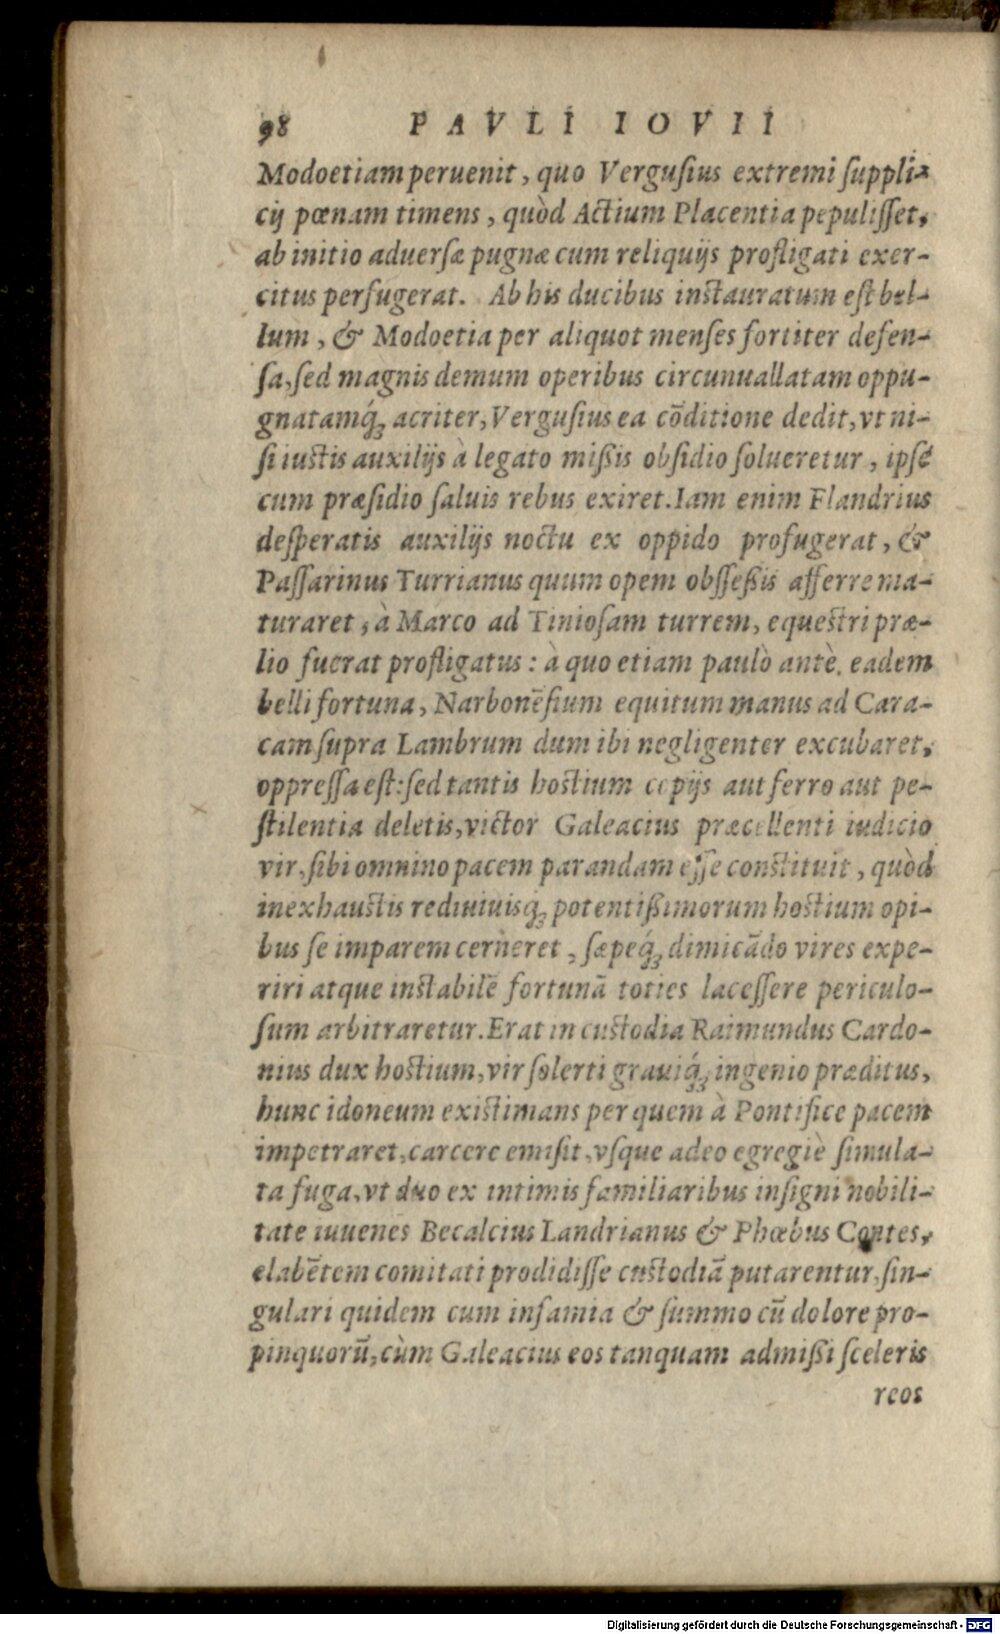 98 PAVLI IOVII
Modoetiam peruenit, quo Verguſius extremi ſuppli-
cij pœnam timens, quòd Actium Placentia pepuliſſet,
ab initio aduerſæ pugnæ cum reliquijs profligati exer-
citus perfugerat. Ab his ducibus instauratum eſt bel-
lum, & Modoetia per aliquot menſes fortiter defen-
ſa, ſed magnis demum operibus circunuallatam oppu-
gnatamq́; acriter, Verguſius ea cōditione dedit, vt ni-
ſi iustis auxilijs à legato mißis obſidio ſolueretur, ipſe
cum præſidio ſaluis rebus exiret. Iam enim Flandrius
deſperatis auxilijs noctu ex oppido profugerat, &
Paſſarinus Turrianus quum opem obſſeßis afferre ma-
turaret, à Marco ad Tinioſam turrem, equestri præ-
lio fuerat profligatus: à quo etiam paulò antè, eadem
belli fortuna, Narbonēſium equitum manus ad Cara-
cam ſupra Lambrum dum ibi negligenter excubaret,
oppreſſa eſt: ſed tantis hostium copijs aut ferro aut pe-
ſtilentia deletis, victor Galeacius præcellenti iudicio
vir, ſibi omnino pacem parandam eſſe constituit, quòd
inexhaustis rediuiuisq; potentißimorum hostium opi-
bus ſe imparem cerneret, ſæpeq́; dimicādo vires expe-
riri atque instabilē fortunā toties laceſſere periculo-
ſum arbitraretur. Erat in custodia Raimundus Cardo-
nius dux hostium, vir ſolerti grauiq́; ingenio præditus,
hunc idoneum existimans per quem à Pontifice pacem
impetraret, carcere emiſit, vſque adeo egregiè ſimula-
ta fuga, vt duo ex intimis familiaribus inſigni nobili-
tate iuuenes Becalcius Landrianus & Phœbus Contes,
elabētem comitati prodidiſſe custodiā putarentur, ſin-
gulari quidem cum infamia & ſummo cū dolore pro-
pinquorū, cùm Galeacius eos tanquam admißi ſceleris
reos
Digitalisierung gefördert durch die Deutsche Forschungsgemeinschaft - DFG